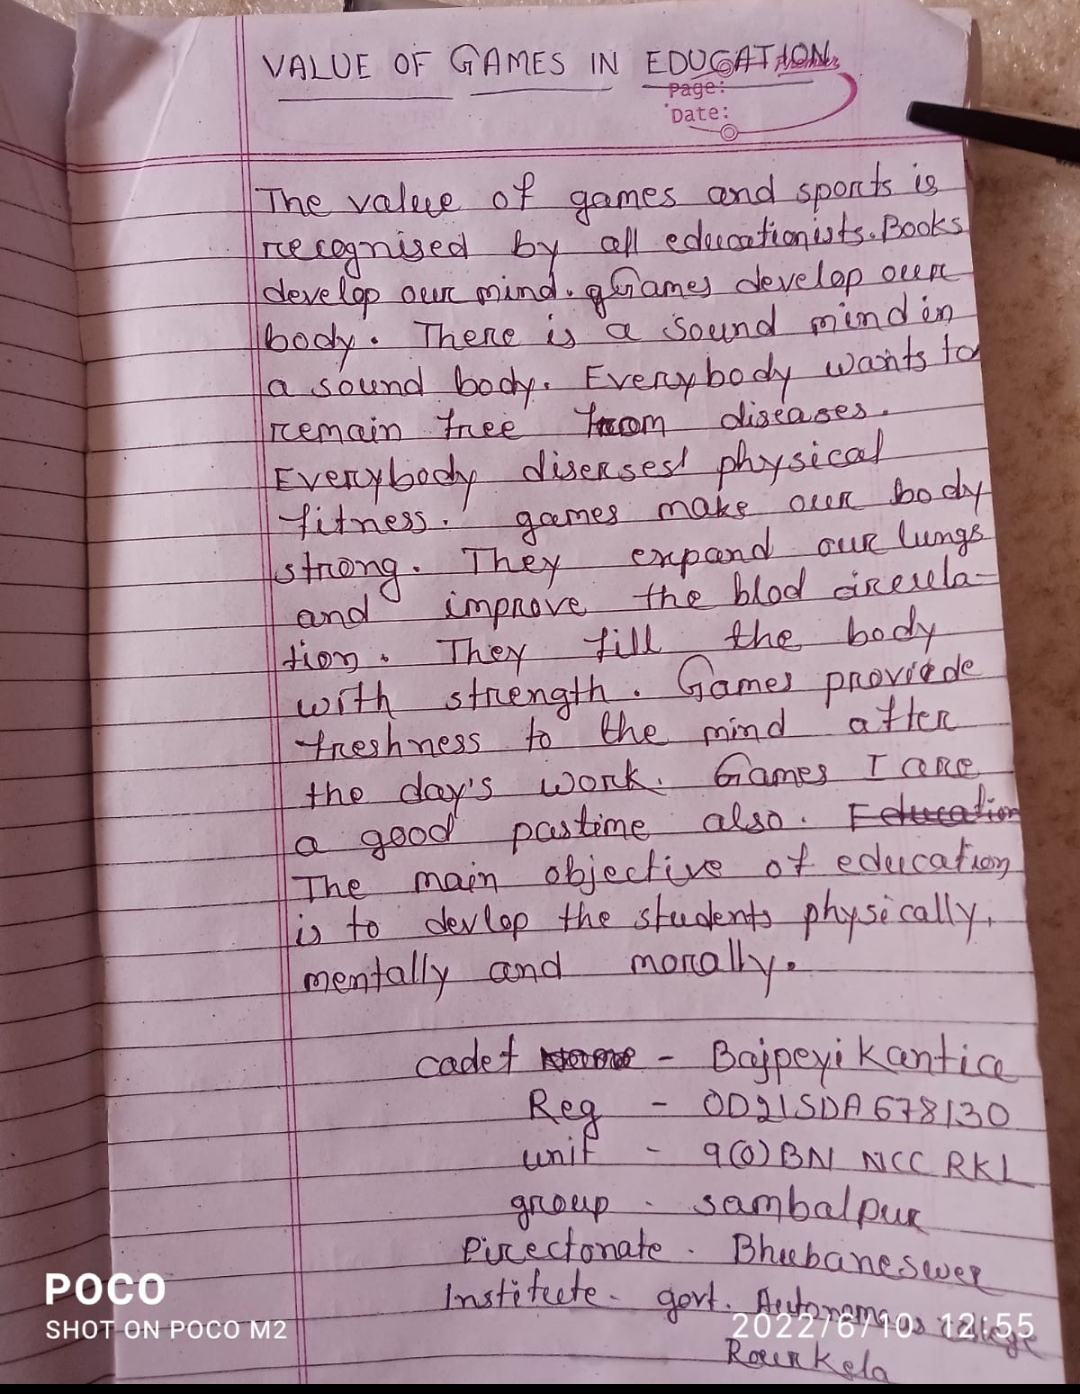 VALUE OF GAMES IN EDUCATION
Page:
Date:
The value of games and sports is
recognised by all educationists. Books
develop our mind. Games develop our
body. There is a sound mind in
a sound body. Everybody wants to
remain free from diseases.
Everybody diserses physical
fitness. games make our body
strong. They expand our lungs
and improve the blod circula-
tion. They fill the body
with strength. Games provide
freshness to the mind after
the day's work. Games I are
a good pastime also. Education
The main objective of education
is to devlop the students physically,
mentally and morally.
cadet - Bajpeyi Kantira
Reg - OD21SDA678130
unit - 9(O) BN NCC RKL
group - sambalpur
Directorate - Bhubaneswer
Institute - govt. Autonomous College
Rourkela
POCO
SHOT ON POCO M2
2022/6/10 12:55